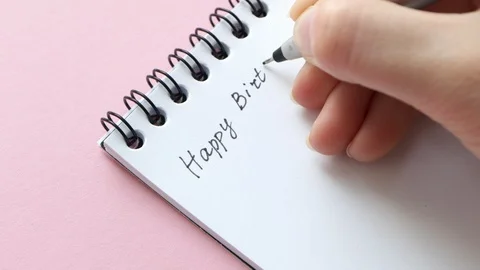 Happy Birt